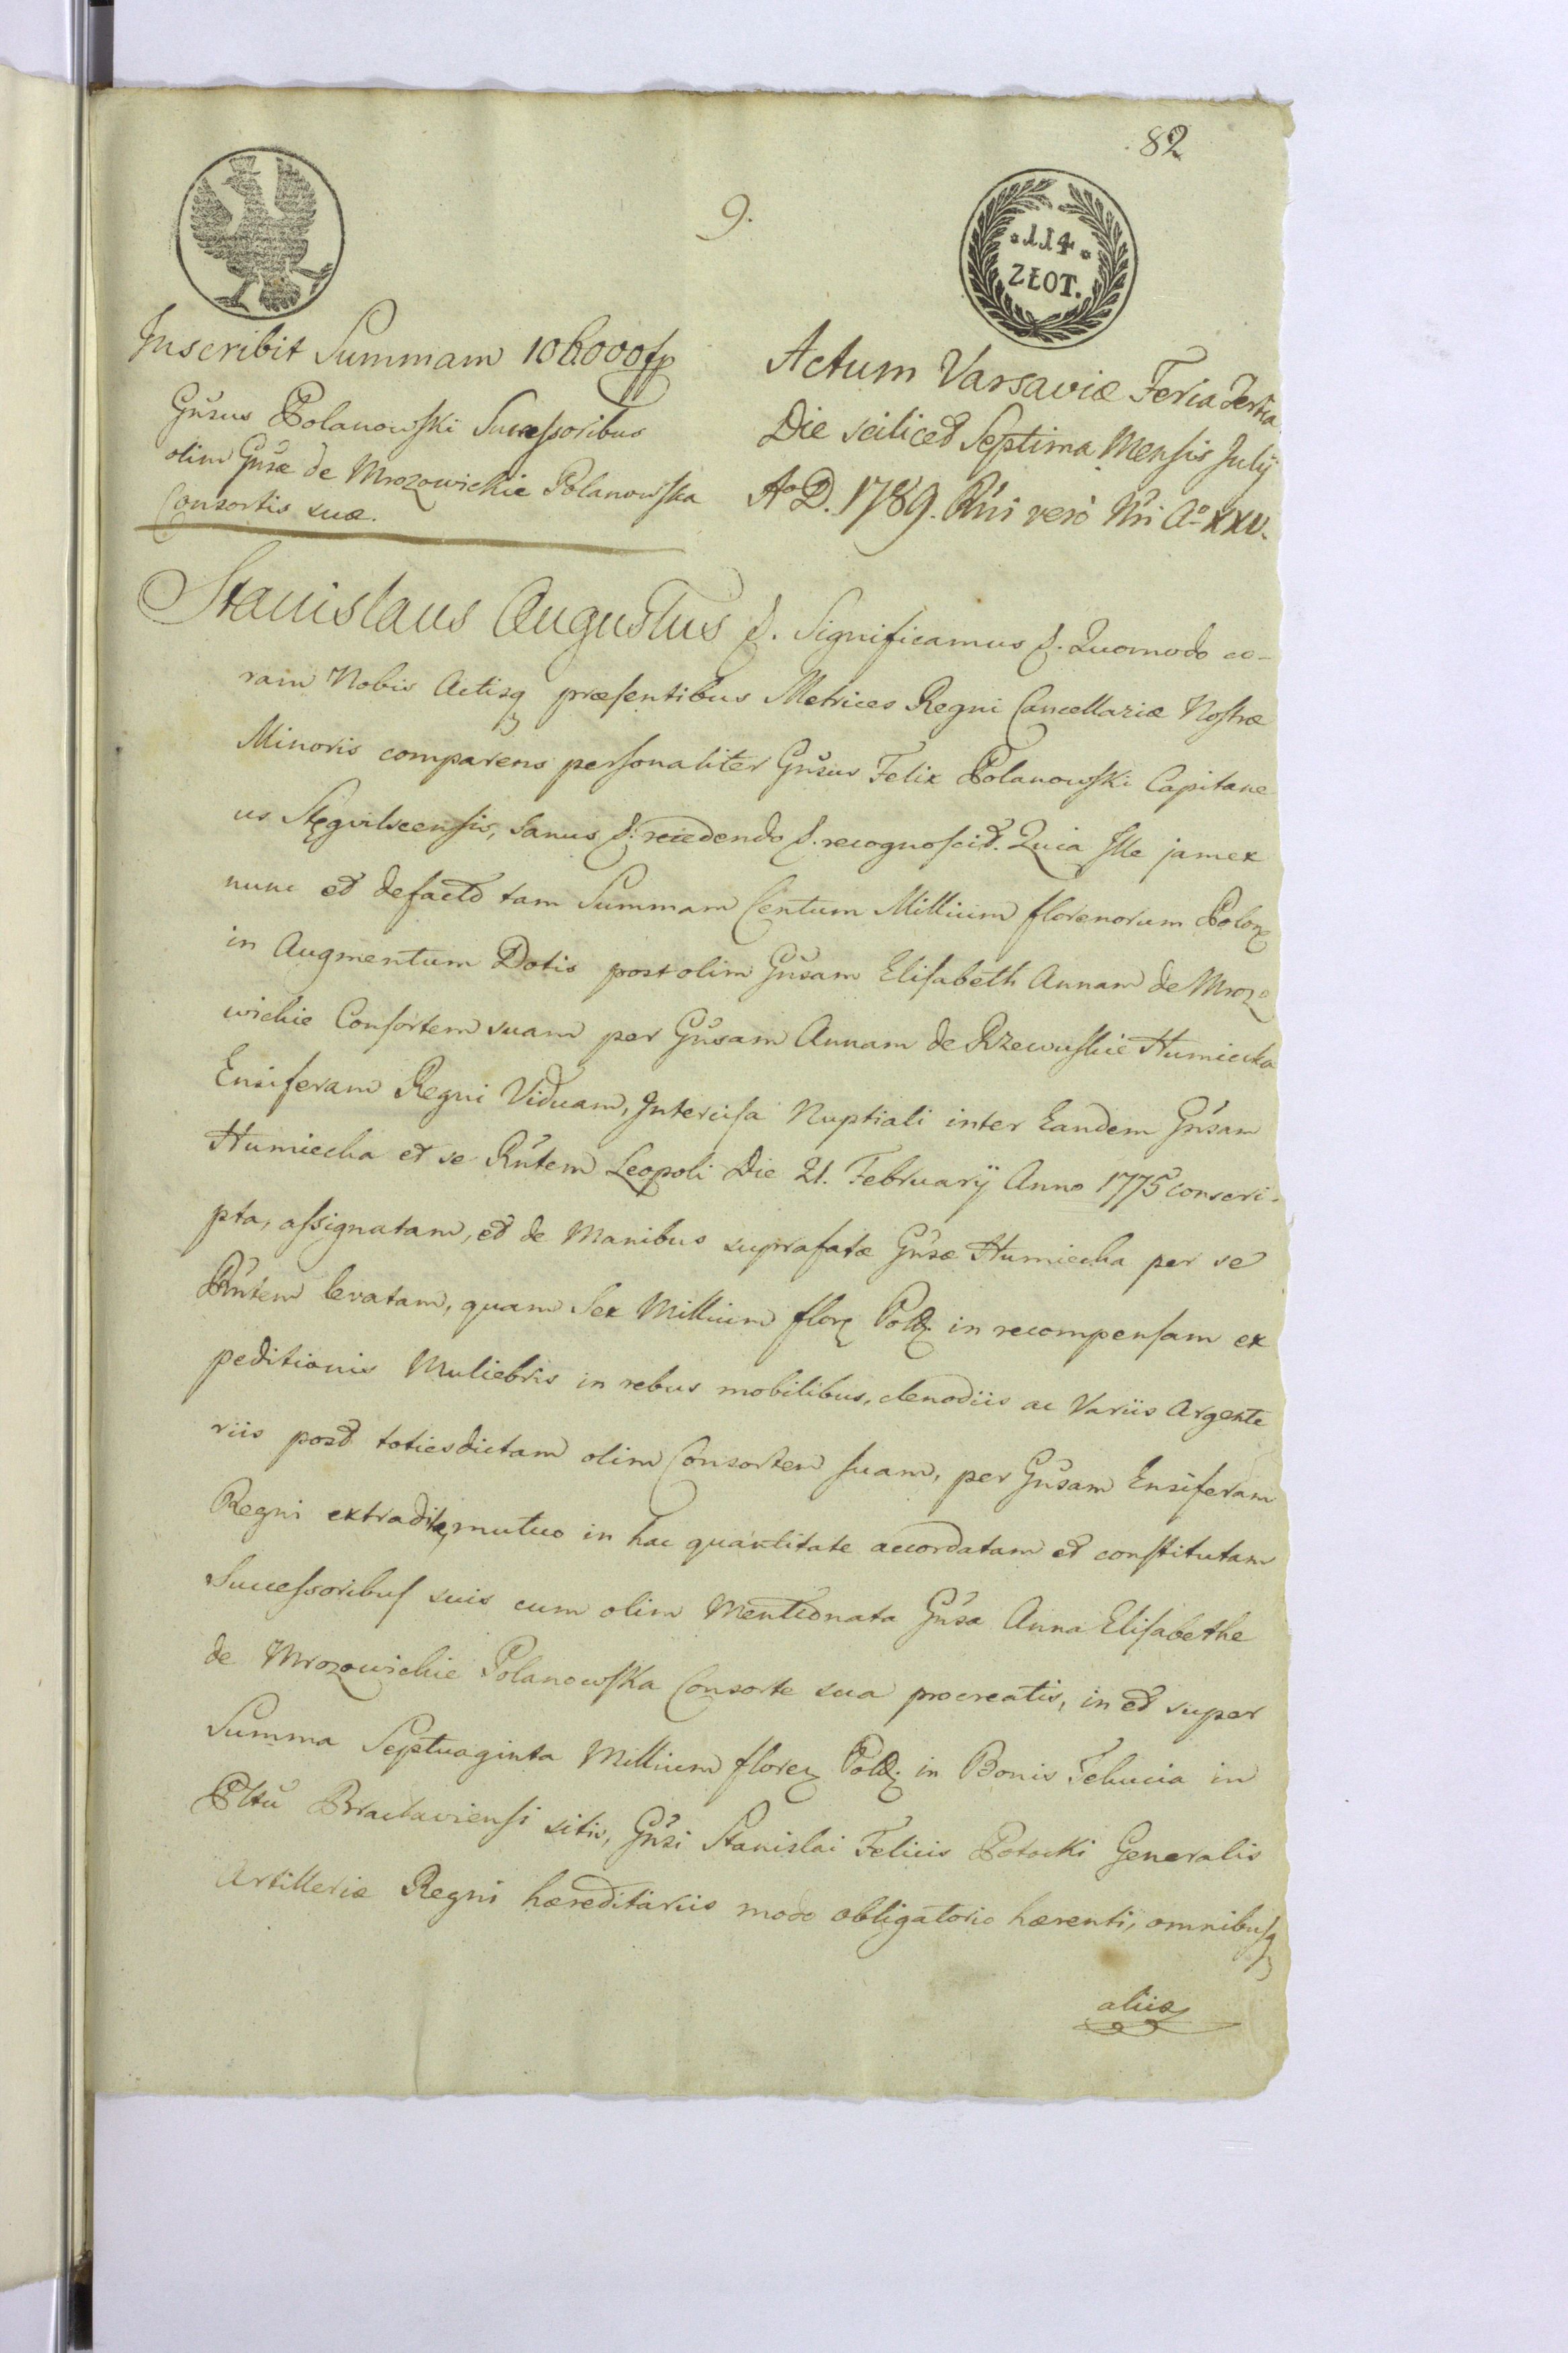 82
9.
114
ZŁOT.
Inscribit Summam 106000 fp
Gnsus Polanowski Successoribus
olim Gnsæ de Mrozowickie Polanowska
Consortis suæ.
Actum Varsaviæ Feria Tertia
Die scilicet Septima Mensis Julij
Ao D. 1789. Rni verò Nri Ao XXV.
Stanislaus Augustus &. Significamus &. Quomodo co-
ram Nobis Actisq præsentibus Metrices Regni Cancellariæ Nostræ
Minoris comparens personaliter Gnsus Felix Polanowski Capitane
us Stęgvilscensis, sanus &. recedendo &. recognoscit. Quia Ille jam ex
nunc et defacto tam Summam Centum Millium florenorum Polon
in Augmentum Dotis post olim Gnsam Elisabeth Annam de Mrozo
wickie Consortem suam per Gnsam Annam de Rzewuskie Humiecka
Ensiferam Regni Viduam, Intercisa Nuptiali inter Eandem Gnsam
Humiecka et se Rntem Leopoli Die 21. Februarij Anno 1775 conscri-
pta, assignatam, et de Manibus suprafatæ Gnsæ Humiecka per se
Rntem levatam, quam Sex Millium flor Pol. in recompensam ex
peditionis Muliebris in rebus mobilibus, clenodiis ac Variis Argente
riis post toties dictam olim Consortem suam, per Gnsam Ensiferam
Regni extradita, mutuo in hac quantitate accordatam et constitutam
Successoribus suis cum olim Mentionata Gnsa Anna Elisabethe
de Mrozowickie Polanowska Consorte sua procreatis, in et super
Summa Septuaginta Millium flore Pol. in Bonis Felucia in
Pltu Braclaviensi sitis, Gnsi Stanislai Felicis Potocki Generalis
Artilleriæ Regni hæreditariis modo obligatorio hærenti, omnibusq
aliis